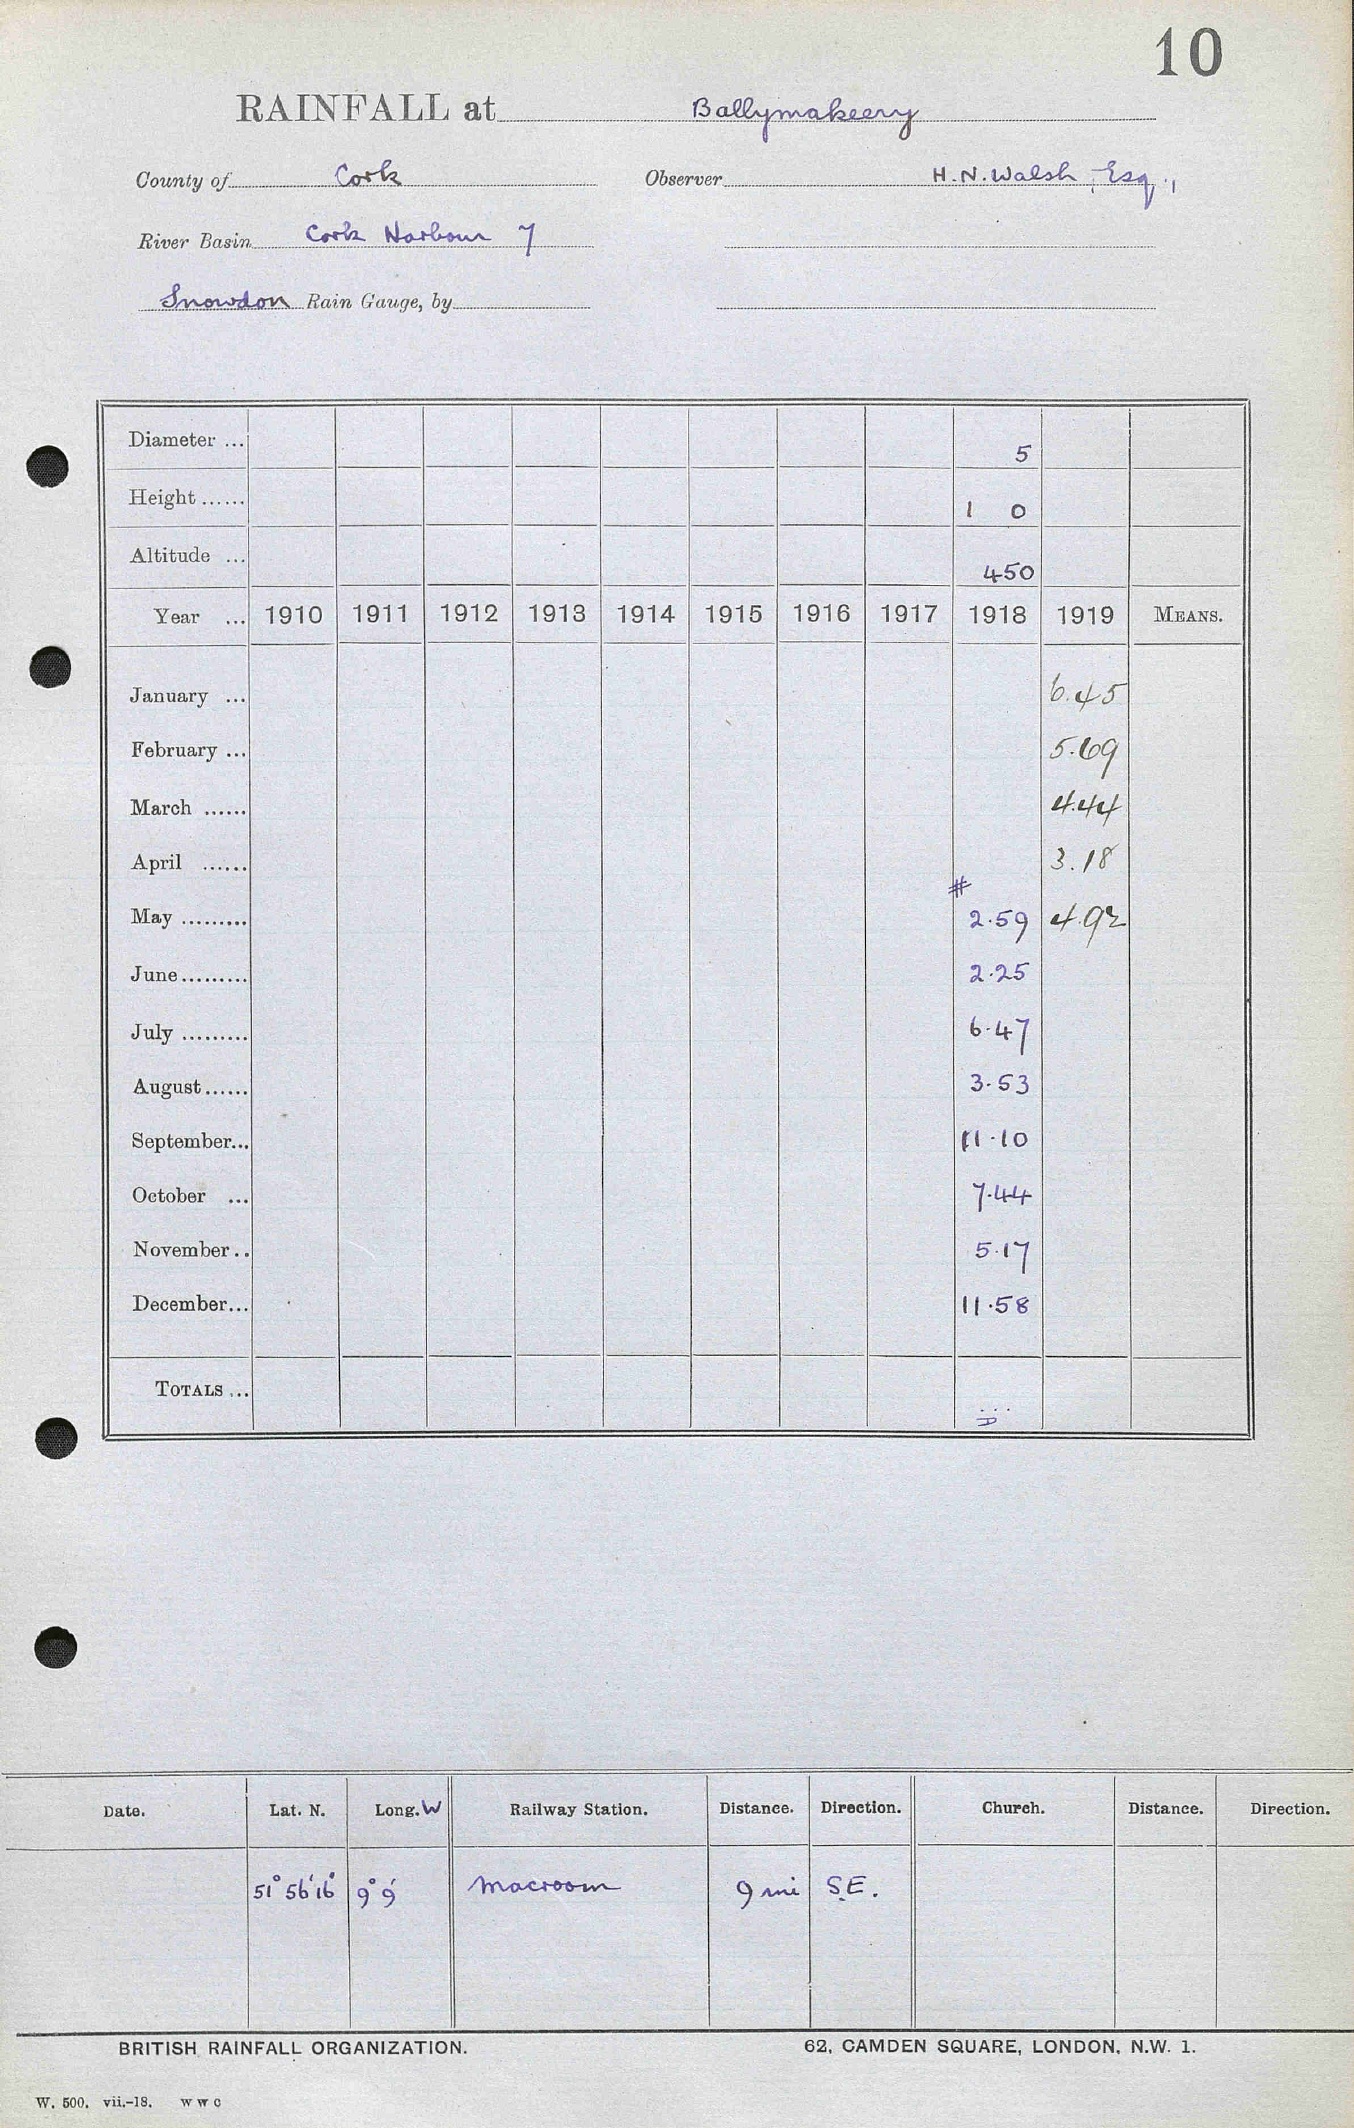 10
RAINFALL at Ballymakeery
County of Cork Observer H.N. Walsh, Esq.,
River Basin Cork Harbour 7
Snowdon Rain Gauge, by
Diameter ... 5
Height ...... 1 0
Altitude ... 450
Year ... 1910 1911 1912 1913 1914 1915 1916 1917 1918 1919 MEANS.
January ... 6.45
February ... 5.69
March ...... 4.44
April ...... 3.18
#
May ......... 2.59 4.92
June ......... 2.25
July ......... 6.47
August ...... 3.53
September... 11.10
October ... 7.44
November .. 5.17
December... 11.58
TOTALS ... ...
Date. Lat. N. Long. W Railway Station. Distance. Direction. Church. Distance. Direction.
51° 56' 16" 9° 9' Macroom 9 mi S.E.
BRITISH RAINFALL ORGANIZATION. 62, CAMDEN SQUARE, LONDON, N.W. 1.
W. 500. vii.-18. W W C